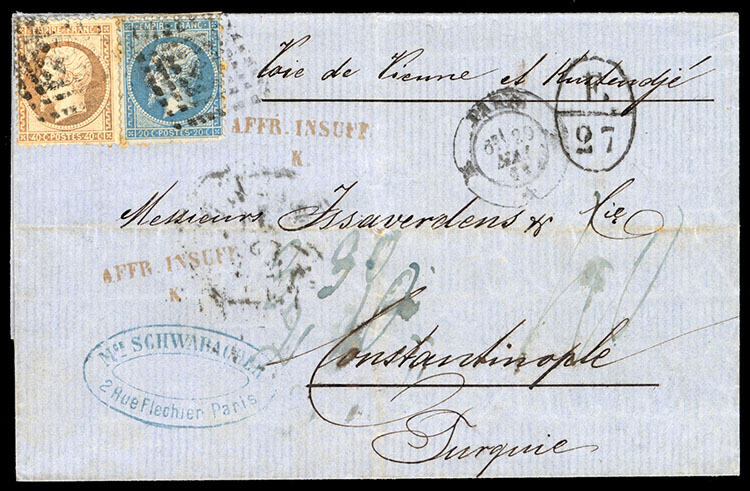 EMPIRE FRANC
40 C POSTES 40 C
EMPIRE FRANC
20 C POSTES 20 C
Voie de Vienne et Kustendjé
P.
27
AFFR. INSUFF
K.
PARIS
29
MAI
Messieurs Issaverdens & Cie
AFFR. INSUFF
K
Constantinople
Turquie
Mce SCHWABACHER
2 Rue Flechier Paris